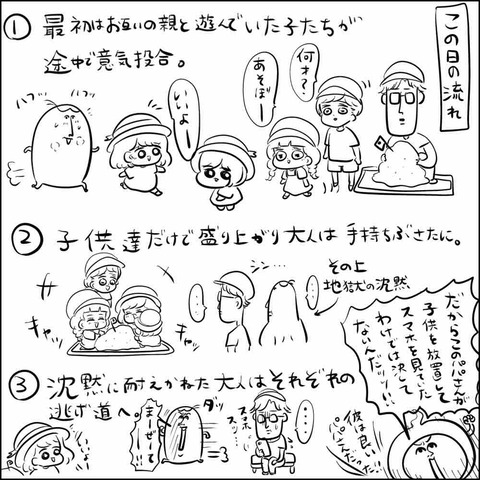 この日の流れ
① 最初はお互いの親と遊んでいた子たちが
途中で意気投合。
何才?
あそぼー
いいよー
ハブッ
ハブッ
② 子供達だけで盛り上がり大人は手持ちぶさたに。
キャッ
キャッ
シン…
その上
地獄の沈黙
だからこのパパさんが
子供を放置して
スマホを見てた
わけでは決して
ないんだッッ!!
彼は良い
パパさんだった!!
③ 沈黙に耐えかねた大人はそれぞれの
逃げ道へ。
いいよ
まーぜーて
ダッ
スマホ
スッ…